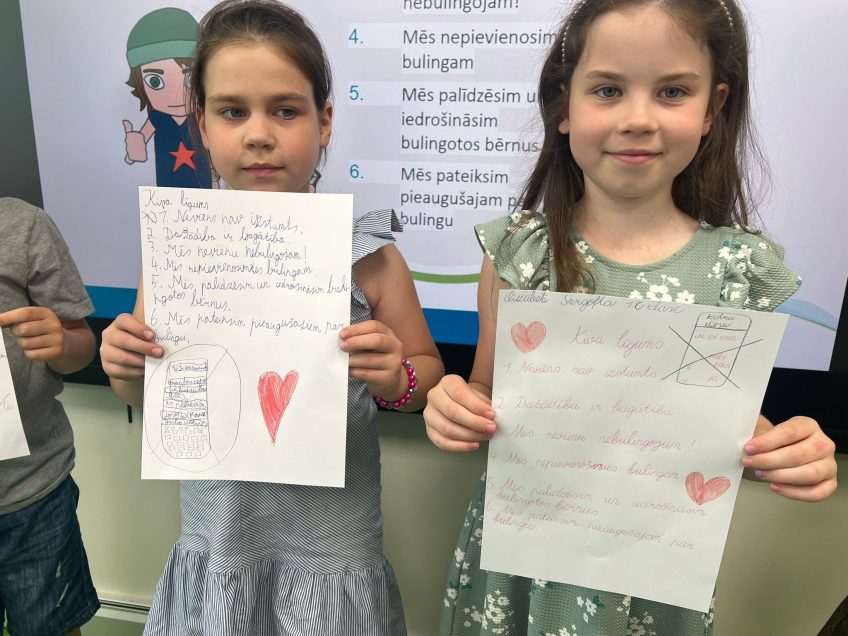 nebulingojam!
4. Mēs nepievienosim
bulingam
5. Mēs palīdzēsim un
iedrošināsim
bulingotos bērnus
6. Mēs pateiksim
pieaugušajam pa
bulingu
Kiva līgums
1. Neviens nav izstumts.
2. Dažādība ir bagātība.
3. Mēs nevienu nebulingosim!
4. Mēs nepievienosimies bulingam.
5. Mēs palīdzēsim un iedrošināsim bulin-
gotos bērnus.
6. Mēs pateiksim pieaugušajam par
bulingu.
Kiva līgums
1. Neviens nav izstumts
2. Dažādība ir bagātība
Mēs nevienu nebulingojam!
4 Mēs nepievienosimies bulingam
5 Mēs palīdzēsim un iedrošināsim
bulingotos bērnus
6. Mēs pateiksim pieaugušajam par
bulingu.